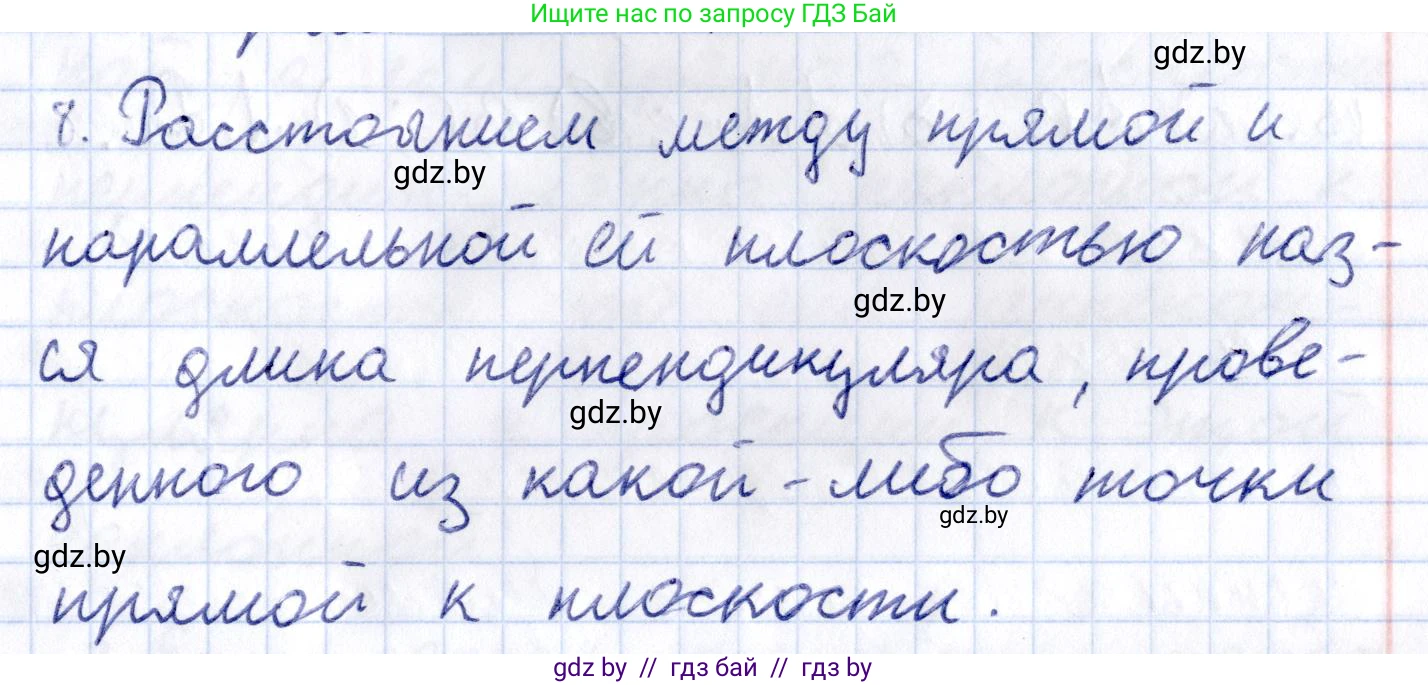 Ищите нас по запросу ГДЗ Бай
gdz.by
8. Расстоянием между прямой и
gdz.by
параллельной ей плоскостью наз-
gdz.by
ся длина перпендикуляра, прове-
gdz.by
денного из какой-либо точки
gdz.by
gdz.by
прямой к плоскости.
gdz by // гдз бай // гдз by